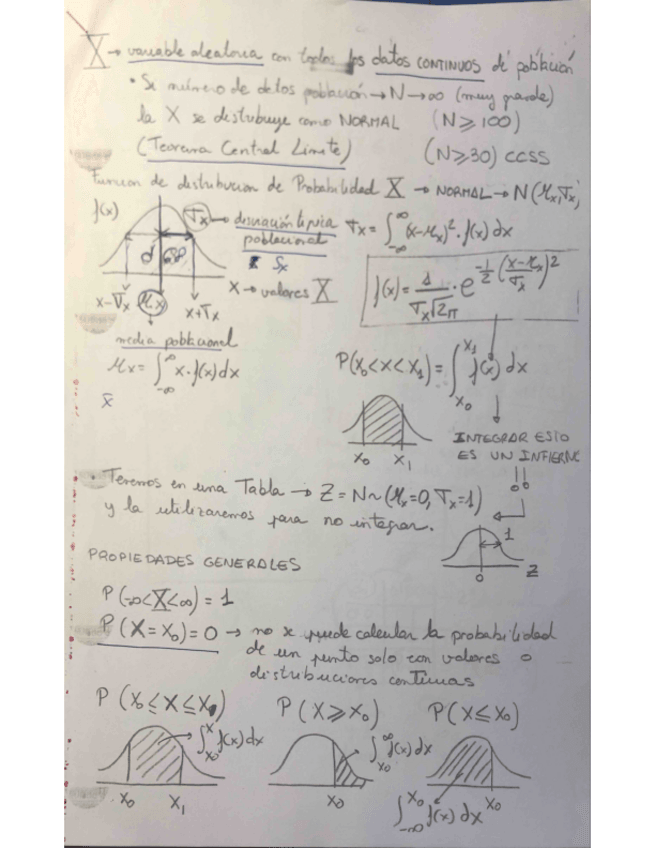 X → variable aleatoria con todos los datos CONTINUOS de población
• Si número de datos población → N → ∞ (muy grande)
la X se distribuye como NORMAL (N ≥ 100)
(Teorema Central Límite) (N ≥ 30) CCSS
Función de distribución de Probabilidad X → NORMAL → N(μx, σx)
f(x) σx → desviación típica poblacional σx = ∫_{-∞}^{∞} (x-μx)² · f(x) dx
Sx
x-σx μx x+σx X → valores X
f(x) = 1/(σx√2π) · e^{-1/2 ((x-μx)/σx)²}
media poblacional
μx = ∫_{-∞}^{∞} x · f(x) dx
x̄
P(x₀ < x < x₁) = ∫_{x₀}^{x₁} f(x) dx
x₀ x₁
INTEGRAR ESTO
ES UN INFIERNO
!!
• Tenemos en una Tabla → Z = N ~ (μx = 0, σx = 1)
y la utilizaremos para no integrar.
1
0 Z
PROPIEDADES GENERALES
P(-∞ < X < ∞) = 1
P(X = x₀) = 0 → no se puede calcular la probabilidad
de un punto solo con valores o
distribuciones continuas
P(x₀ ≤ X ≤ x₁) P(X ≥ x₀) P(X ≤ x₀)
∫_{x₀}^{x} f(x) dx ∫_{x₀}^{∞} f(x) dx
x₀ x₁ x₀ x₀
∫_{-∞}^{x₀} f(x) dx